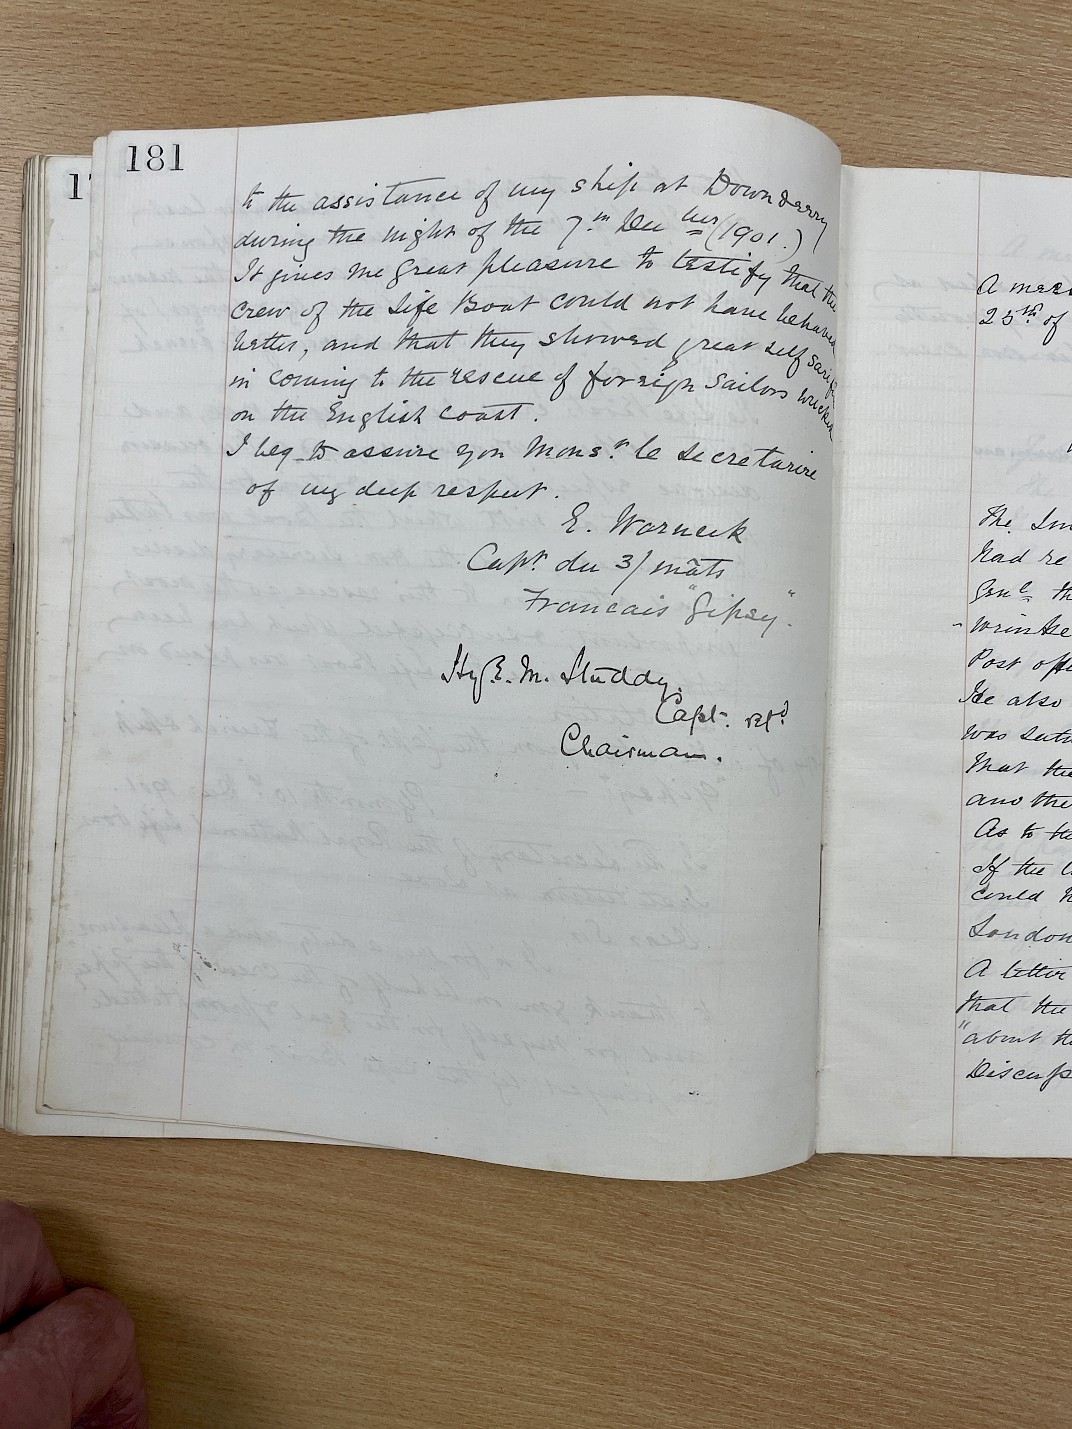 181
to the assistance of my ship at Downderry
during the night of the 7th Decber (1901.)
It gives me great pleasure to testify that the
crew of the Life Boat could not have behaved
better, and that they showed great self sacrifice
in coming to the rescue of foreign Sailors wrecked
on the English coast.
I beg to assure you Monsr le Secretarire
of my deep respect.
E. Warneck
Capt. du 3/mâts
Francais "Gipsy".
Hy. E. M. Studdy.
Capt. retd
Chairman.
25th of
The
had re
Genl th
Post offi
He also
was
that the
another
As to the
If the
could
London
A letter
that the
"about th